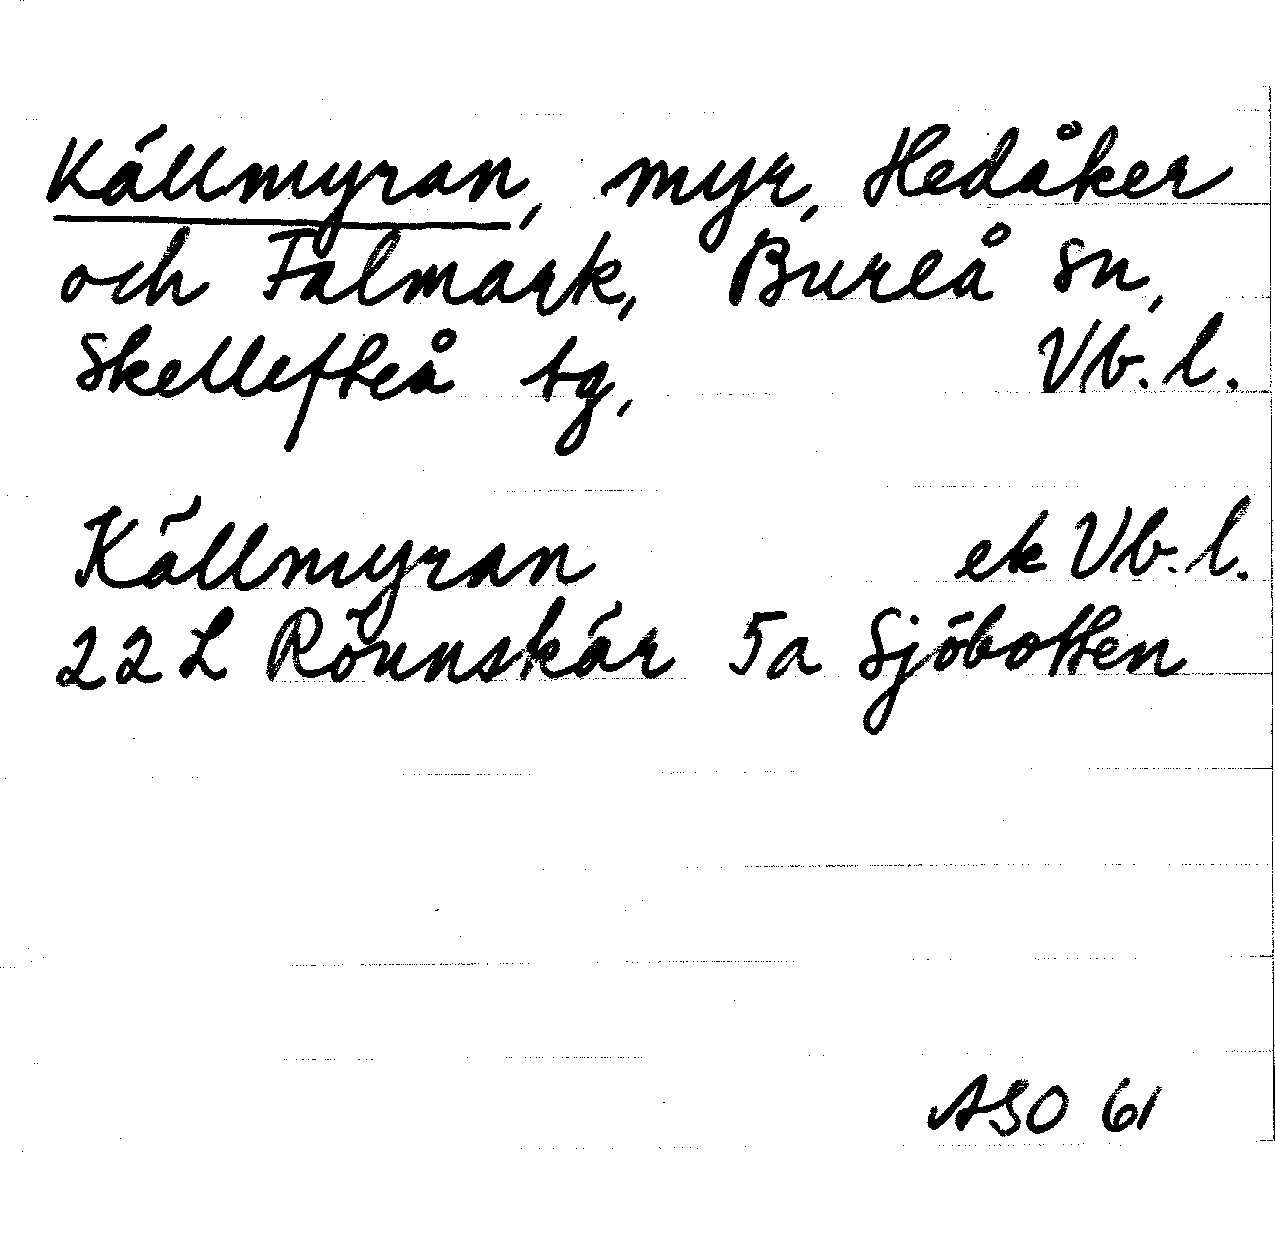 Källmyran, myr, Hedåker
och Falmark, Bureå sn,
Skellefteå tg, Vb. l.
Källmyran ek Vb. l.
22 L Rönnskär 5a Sjöbotten
ASO 61